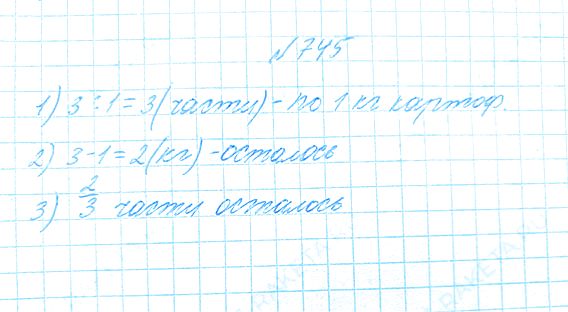 №745
1) 3:1=3(части)-по 1 кг картоф.
2) 3-1=2(кг)-осталось
3) 2/3 части осталось